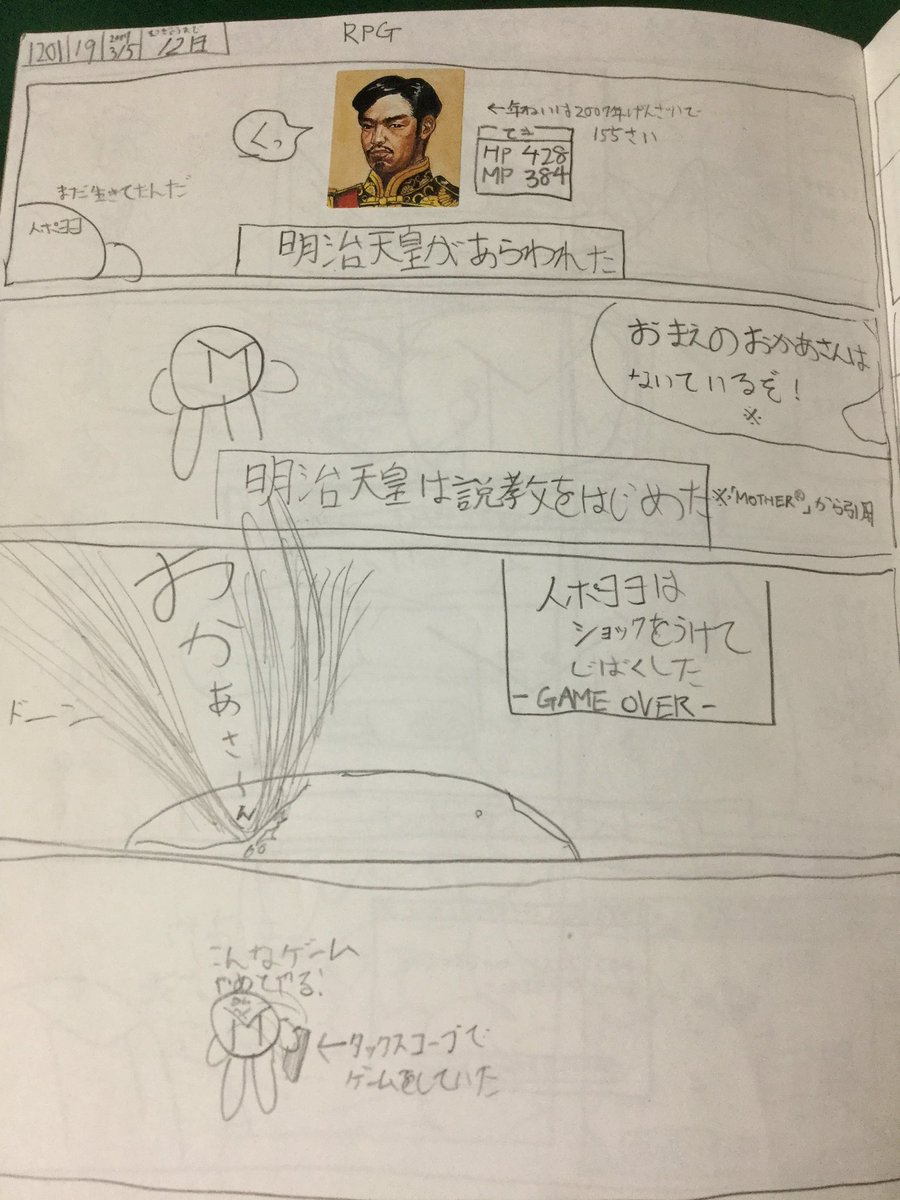 RPG
1201
19
2007
3/5
12日
くっ
←年れいは2007年げんざいで
155さい
てき
HP 428
MP 384
まだ生きてたんだ
人ポヨヨ
明治天皇があらわれた
M
おまえのおかあさんは
ないているぞ!
※
明治天皇は説教をはじめた
※「MOTHER®」から引用
おかあさーん
ドーン
人ポヨヨは
ショックをうけて
じばくした
-GAME OVER-
こんなゲーム
やめてやる!
M
←タックスコープで
ゲームをしていた